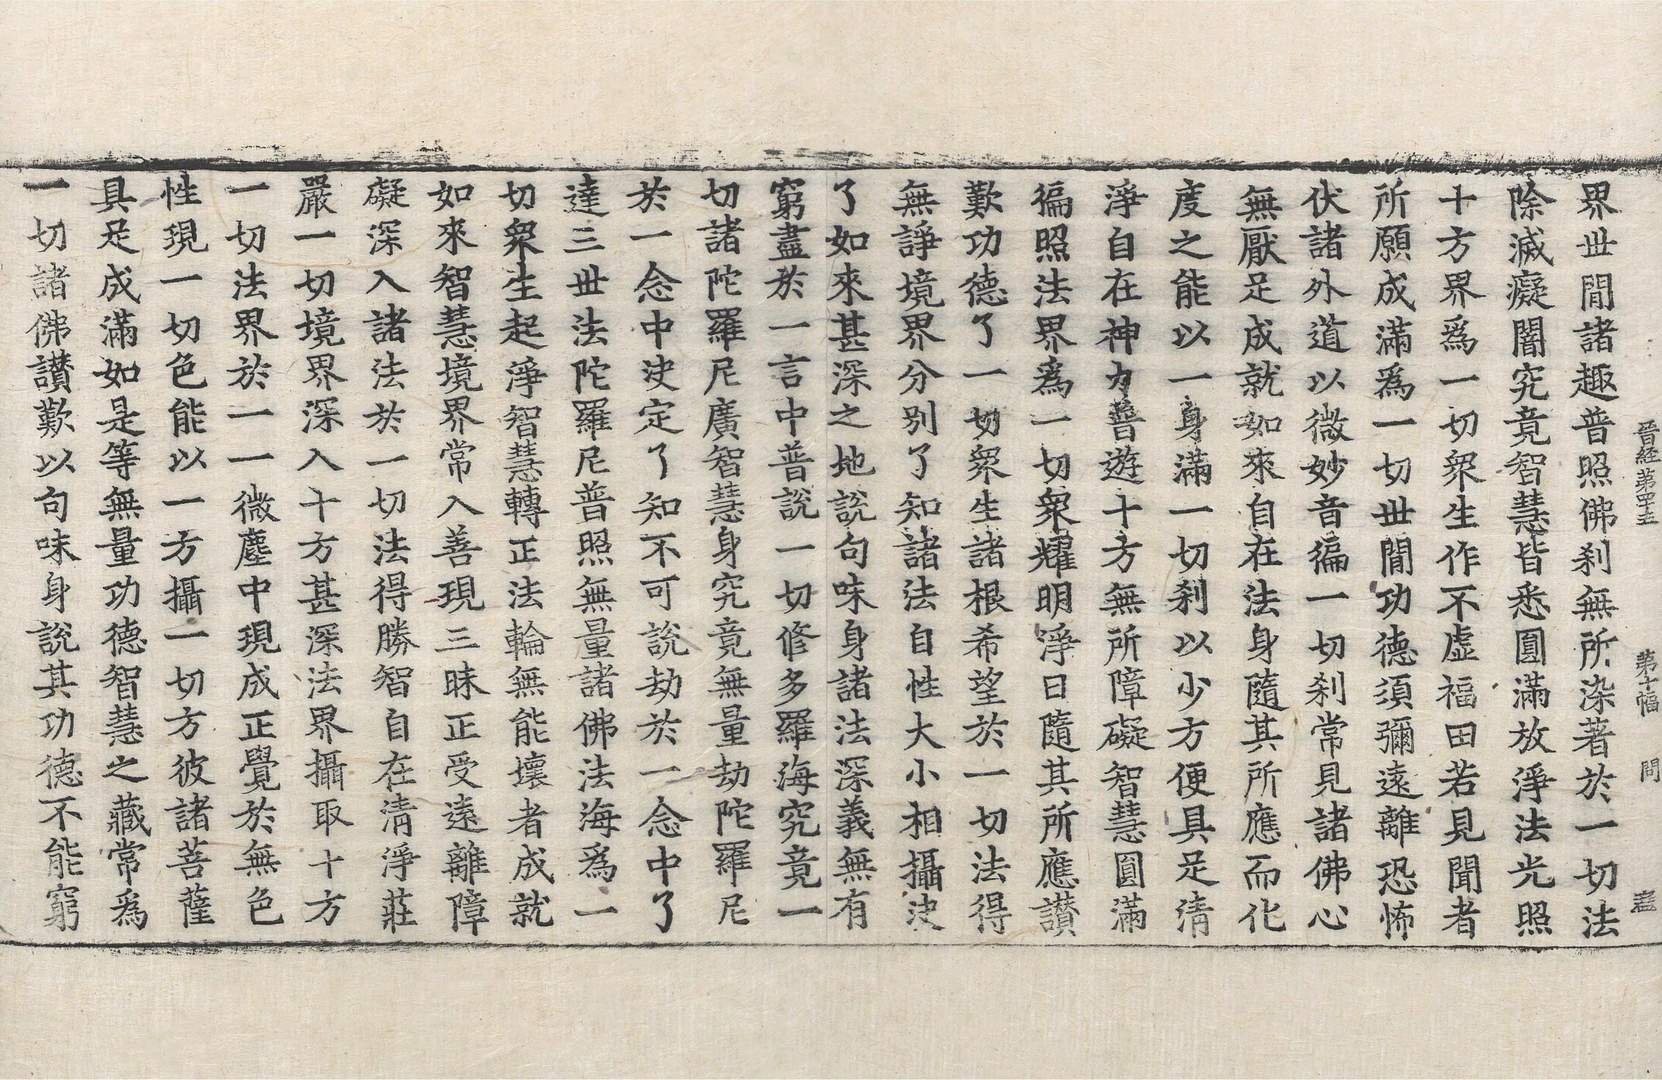 晉經第四十五 第十幅 問 盡
界世間諸趣普照佛刹無所染著於一切法
除滅癡闇究竟智慧皆悉圓滿放淨法光照
十方界爲一切衆生作不虛福田若見聞者
所願成滿爲一切世間功德須彌遠離恐怖
伏諸外道以微妙音徧一切刹常見諸佛心
無厭足成就如來自在法身隨其所應而化
度之能以一身滿一切刹以少方便具足清
淨自在神力普遊十方無所障礙智慧圓滿
徧照法界爲一切衆耀明淨日隨其所應讃
歎功德了一切衆生諸根希望於一切法得
無諍境界分别了知諸法自性大小相攝決
了如來甚深之地說句味身諸法深義無有
窮盡於一言中普說一切修多羅海究竟一
切諸陀羅尼廣智慧身究竟無量劫陀羅尼
於一念中決定了知不可說劫於一念中了
達三世法陀羅尼普照無量諸佛法海爲一
切衆生起淨智慧轉正法輪無能壞者成就
如來智慧境界常入善現三昧正受遠離障
礙深入諸法於一切法得勝智自在清淨莊
嚴一切境界深入十方甚深法界攝取十方
一切法界於一一微塵中現成正覺於無色
性現一切色能以一方攝一切方彼諸菩薩
具足成滿如是等無量功德智慧之藏常爲
一切諸佛讃歎以句味身說其功德不能窮